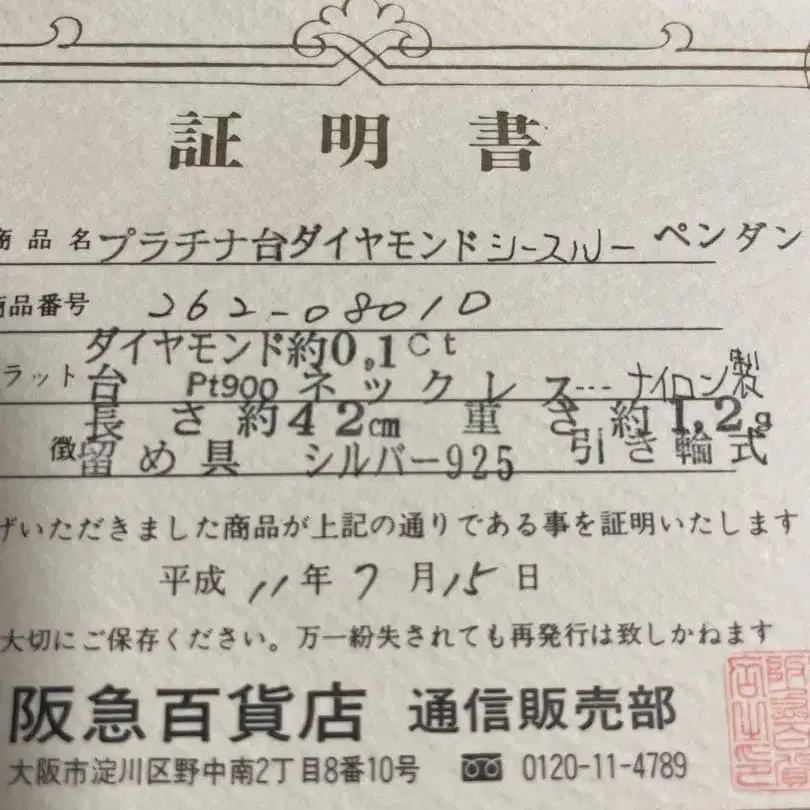 証明書
商品名 プラチナ台ダイヤモンドシースルー ペンダン
商品番号 262-0801D
ダイヤモンド約0,1Ct
ラット 台 Pt900 ネックレス--- ナイロン製
長さ約42cm 重さ約1,2g
徴 留め具 シルバー925 引き輪式
げいただきました商品が上記の通りである事を証明いたします
平成11年7月15日
大切にご保存ください。万一紛失されても再発行は致しかねます
阪急百貨店 通信販売部
大阪市淀川区野中南2丁目8番10号 0120-11-4789